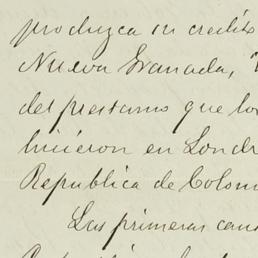 produzca su credito
Nueva Granada,
del prestamo que los
hicieron en Londr
Republica de Colom
Las primeras can